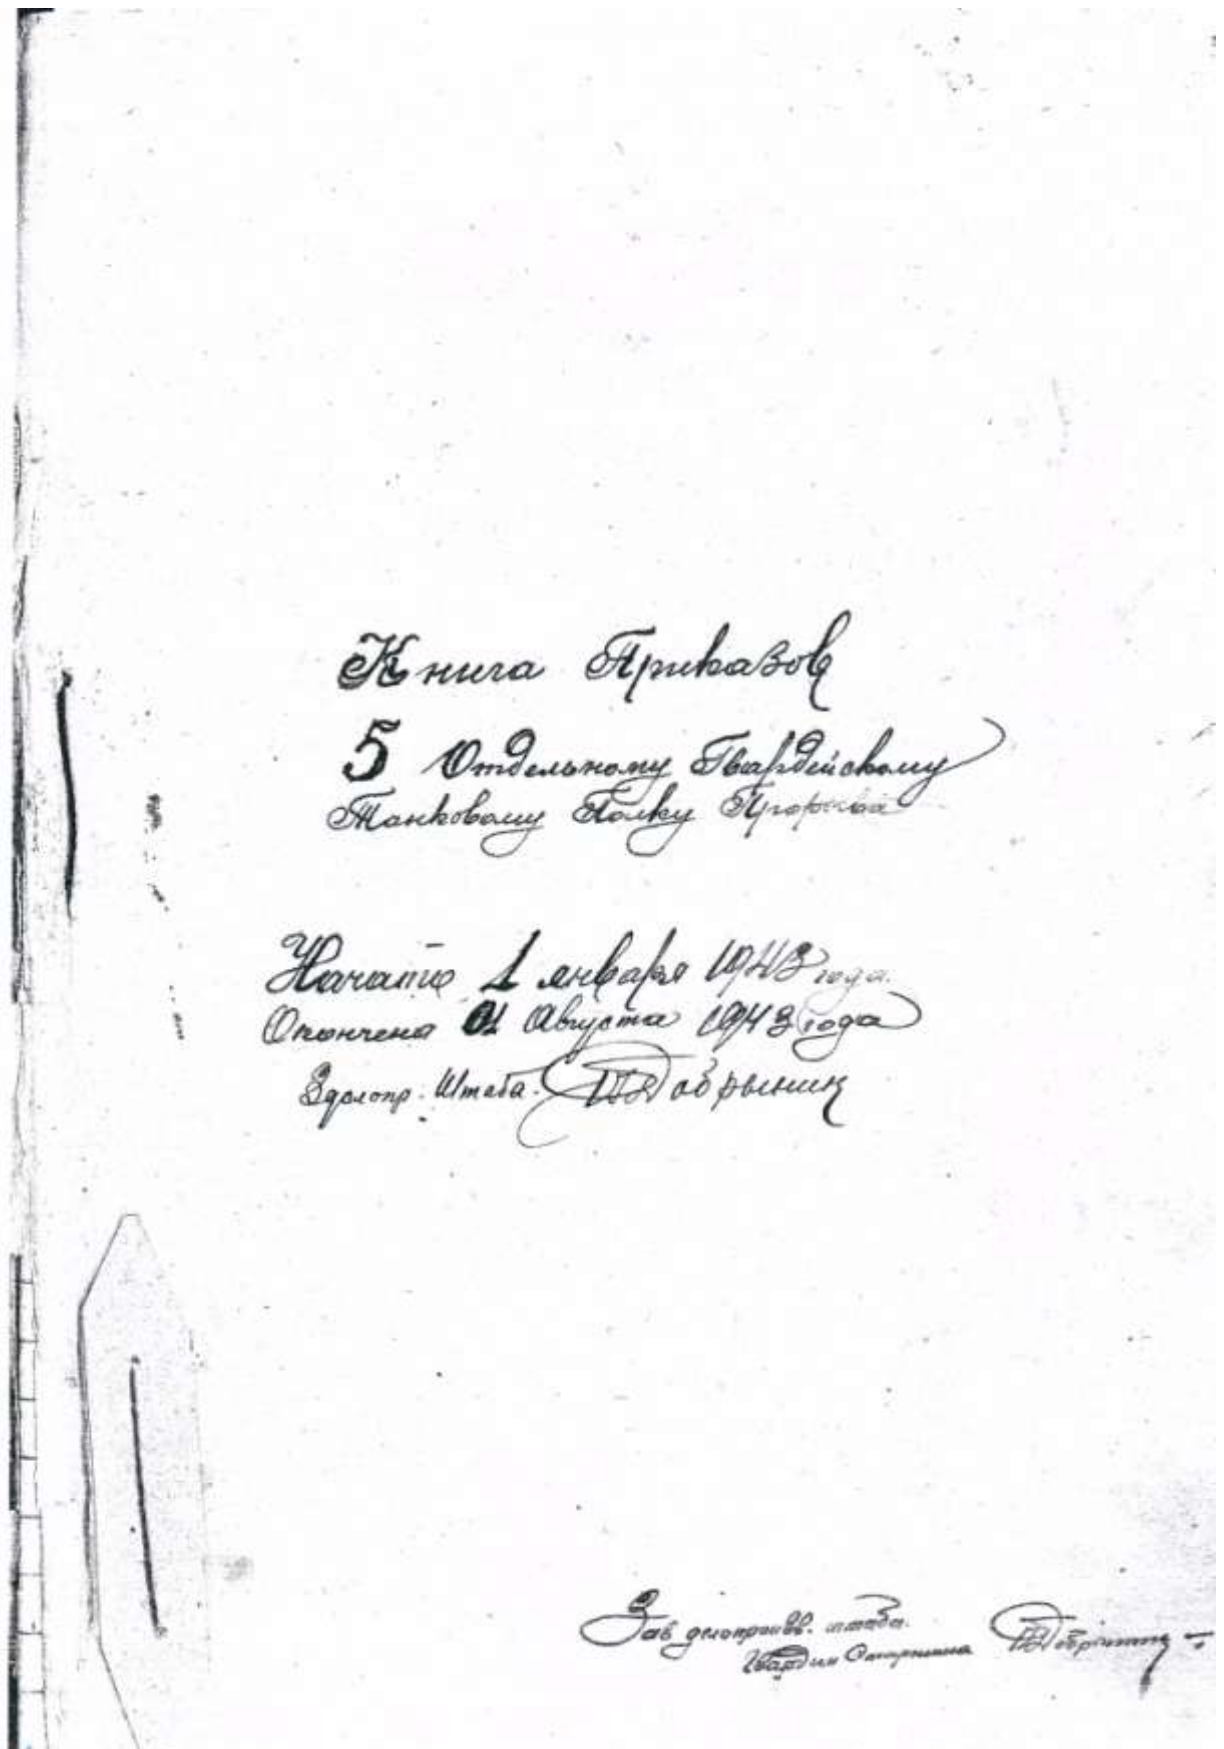 Книга Приказов
5 Отдельному Гвардейскому
Танковому Полку Прорыва
Начато 1 января 1943 года.
Окончена 31 Августа 1943 года
Здело­пр. Штаба. Добрынин
Зав делопроизв. штаба.
Гвардии Старшина Добрынин